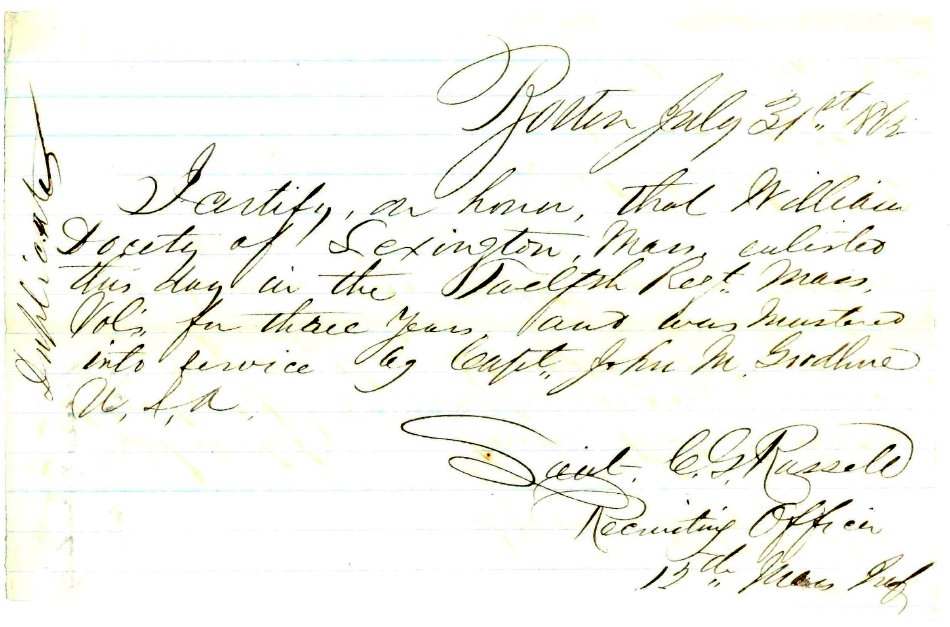 Boston July 31st 1862
I certify, on honor, that William
Docety of Lexington, Mass, enlisted
this day in the Twelfth Regt. Mass.
Vols, for three years, and was mustered
into service by Capt. John M. Goodhue
U. S. A.
Lieut. C. G. Russell
Recruiting Officer
12th Mass Inf
Duplicate